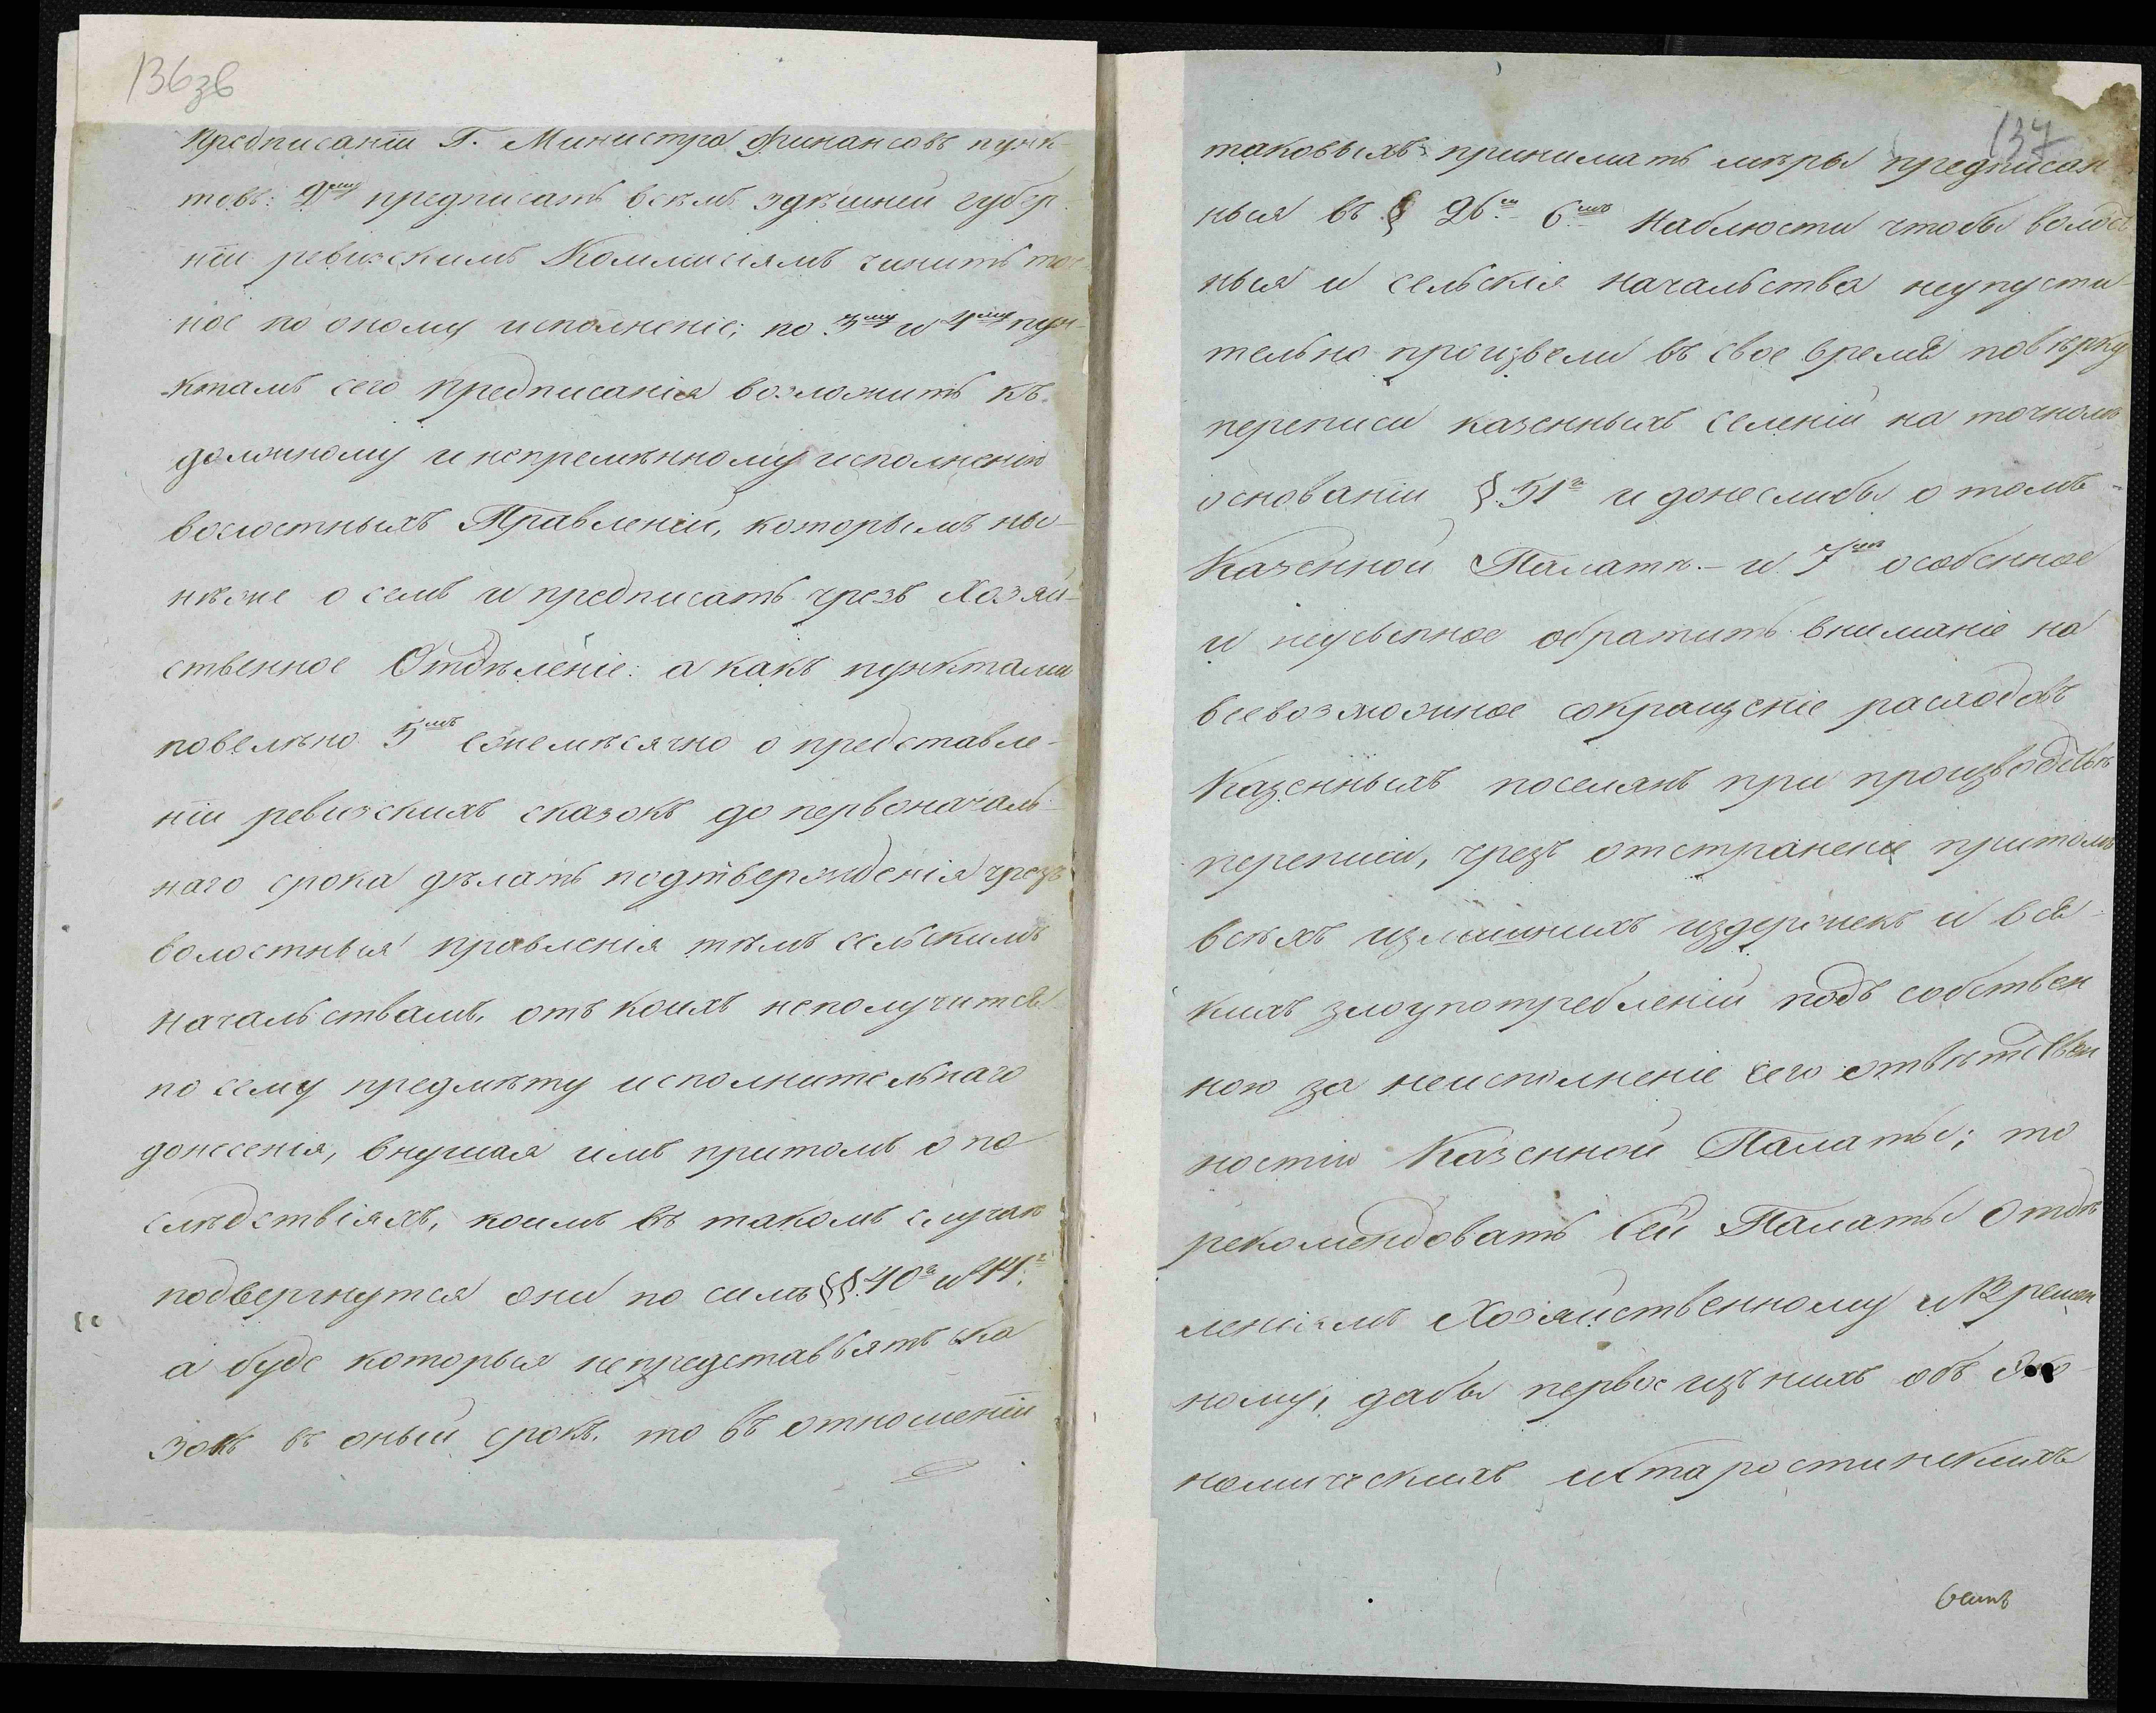 136зв
предписанiи Г. Министра Финансовъ пунк-
товъ: 2му предписать всѣмъ здѣшней губер
нiи ревизскимъ Коммисiямъ чинить точ-
ное по оному исполненiе; по 3му и 4му пун-
ктамъ сего предписанiя возложить къ
должному и непремѣнному исполненiю
волостныхъ Правленiй, которымъ ны-
нѣже о семъ и предписать чрезъ Хозяй-
ственное Отдѣленiе: а какъ пунктами
повелѣно 5мъ ежемѣсячно о представле-
нiи ревизскихъ сказокъ до первоначаль-
наго срока дѣлать подтвержденiя чрезъ
волостныя правленiя тѣмъ сельскимъ
начальствамъ, отъ коихъ неполучится
по сему предмѣту исполнительнаго
донесенiя, внушая имъ притомъ о по
слѣдствiяхъ, коимъ въ такомъ случаѣ
подвергнутся они по силѣ §§. 40г и 41г.
а буде которыя непредставятъ ска
зокъ въ оный срокъ, то въ отношенiи
137
таковыхъ принимать мѣры предписан
ныя въ § 26м 6мъ Наблюсти чтобы волост
ныя и сельскiя начальства неупусти-
тельно произвели въ свое время повѣрку
переписи казенныхъ селенiй на точномъ
основанiи §. 51г и донеслибы о томъ
Казенной Палатѣ. – и 7мъ особенное
и неусыпное обратить вниманiе на
всевозможное сокращенiе расходовъ
Казенныхъ поселянъ при производствѣ
переписи, чрезъ отстраненiе притомъ
всѣхъ излишнихъ издержекъ и вся-
кихъ злоупотребленiй подъ собствен
ною за неисполненiе сего отвѣтствен
ностiю Казенной Палаты; то
рекомендовать сей Палаты Отдѣ
ленiямъ Хозяйственному и Времен
ному, дабы первое изъ нихъ объ Эко-
номическихъ и Старостинскихъ